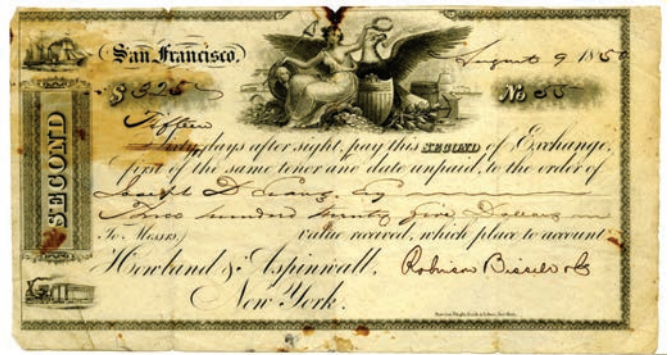 San Francisco, August 9 1850
SECOND
$325 No 55
Fifteen
Sixty days after sight, pay this SECOND of Exchange,
first of the same tenor and date unpaid, to the order of
Joseph D. Esq
Three hundred twenty five Dollars
To Messrs. value received, which place to account
Howland & Aspinwall, Robinson Bissell & Co
New York.